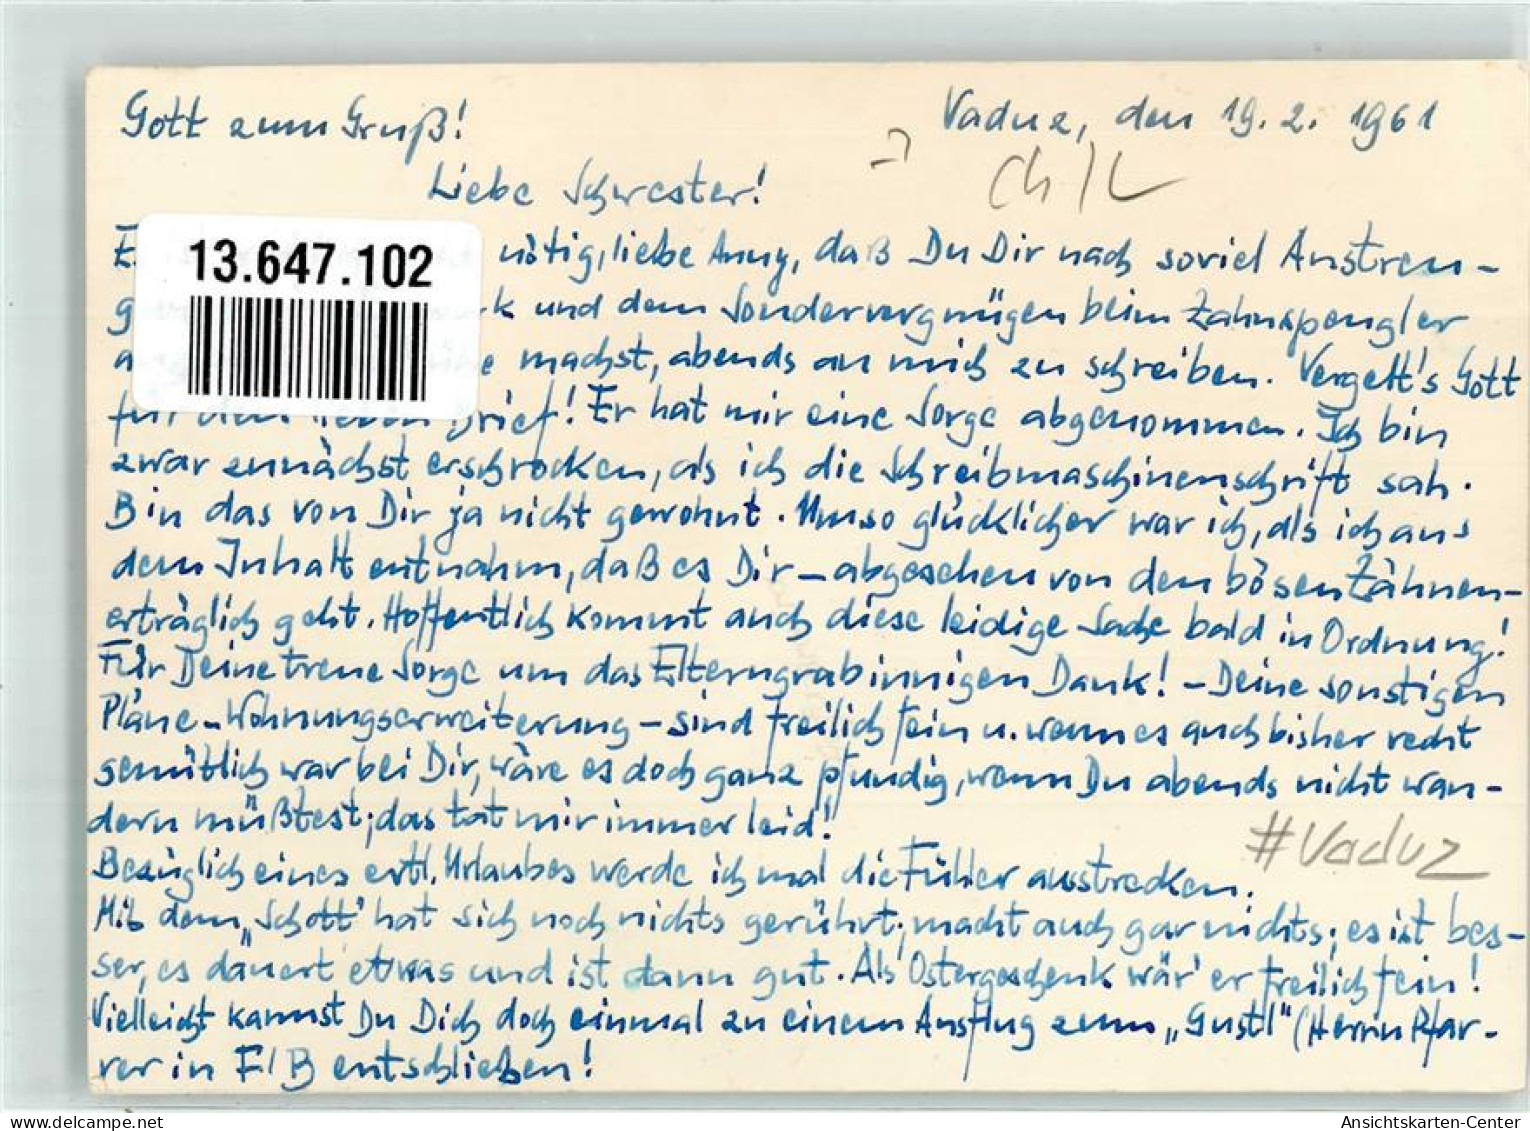 Gott zum Gruß! Vaduz, den 19. 2. 1961
CH/L
Liebe Schwester!
13.647.102
nötig, liebe Anny, daß Du Dir nach soviel Anstren-
und dem Sondervergnügen beim Zahnspengler
machst, abends an mich zu schreiben. Vergelt's Gott
für den lieben Brief! Er hat mir eine Sorge abgenommen. Ich bin
zwar zunächst erschrocken, als ich die Schreibmaschinenschrift sah.
Bin das von Dir ja nicht gewohnt. Umso glücklicher war ich, als ich aus
dem Inhalt entnahm, daß es Dir – abgesehen von den bösen Zähnen –
erträglich geht. Hoffentlich kommt auch diese leidige Sache bald in Ordnung!
Für Deine treue Sorge um das Elterngrab innigen Dank! – Deine sonstigen
Pläne – Wohnungserweiterung – sind freilich fein u. wenn es auch bisher recht
gemütlich war bei Dir, wäre es doch ganz pfundig, wenn Du abends nicht wan-
dern müßtest; das tat mir immer leid!
#Vaduz
Bezüglich eines evtl. Urlaubes werde ich mal die Fühler ausstrecken.
Mit dem „Schott" hat sich noch nichts gerührt; macht auch gar nichts; es ist bes-
ser, es dauert etwas und ist dann gut. Als Ostergeschenk wär' er freilich fein!
Vielleicht kannst Du Dich doch einmal zu einem Ausflug zum „Gustl" (Herrn Pfar-
rer in F/B entschließen!
oldthing.de
Ansichtskarten-Center